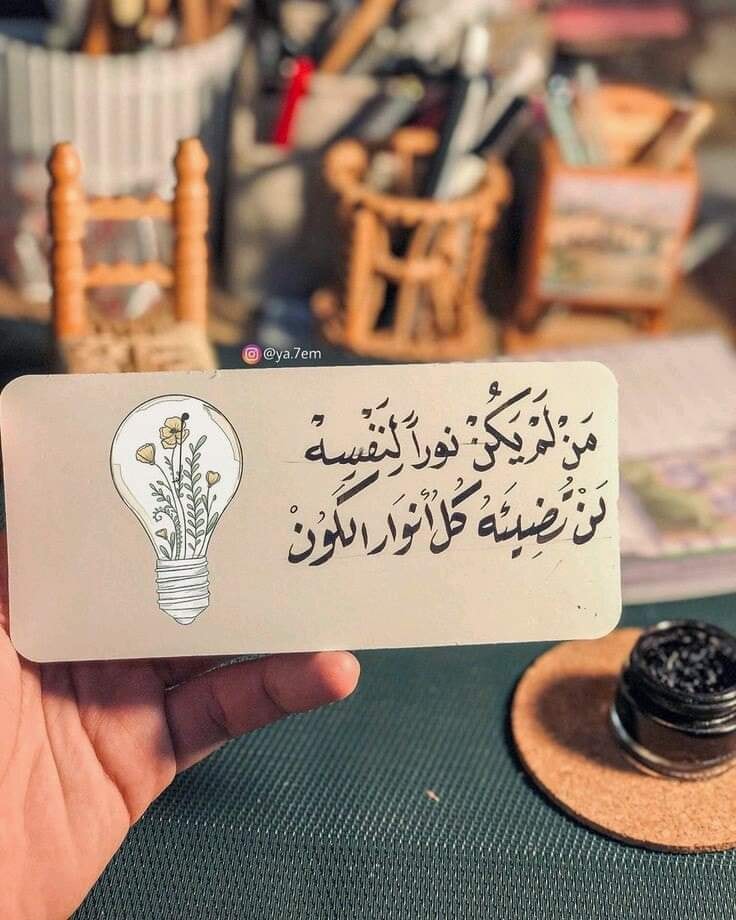 @ya.7em
مَنْ لَمْ يَكُنْ نوراً لِنَفْسِهْ
لَنْ تُضِيئَهُ كُلُ أنوَار الكَوْنْ